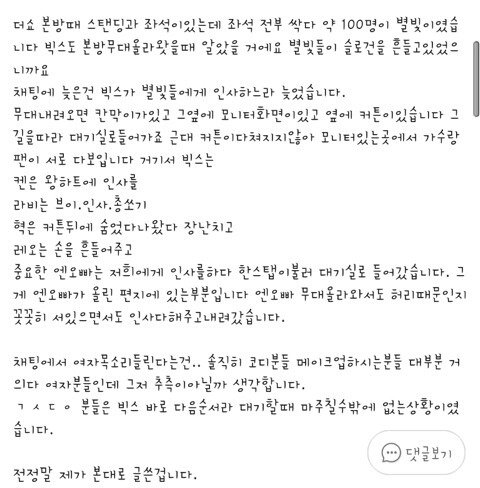 더쇼 본방때 스탠딩과 좌석이있는데 좌석 전부 싹다 약 100명이 별빛이였습
니다 빅스도 본방무대올라왓을때 알았을 거에요 별빛들이 슬로건을 흔들고있었으
니까요
채팅에 늦은건 빅스가 별빛들에게 인사하느라 늦었습니다.
무대내려오면 칸막이가있고 그옆에 모니터화면이있고 옆에 커튼이있습니다 그
길을따라 대기실로들어가죠 근대 커튼이다쳐지지않아 모니터있는곳에서 가수랑
팬이 서로 다보입니다 거기서 빅스는
켄은 왕하트에 인사를
라비는 브이.인사.총쏘기
혁은 커튼뒤에 숨었다나왔다 장난치고
레오는 손을 흔들어주고
중요한 엔오빠는 저희에게 인사를하다 한스탭이불러 대기실로 들어갔습니다. 그
게 엔오빠가 올린 편지에 있는부분입니다 엔오빠 무대올라와서도 허리때문인지
꼿꼿히 서있으면서도 인사다해주고내려갔습니다.
채팅에서 여자목소리들린다는건.. 솔직히 코디분들 메이크업하시는분들 대부분 거
의다 여자분들인데 그저 추측이아닐까 생각합니다.
ㄱ ㅅ ㄷ ㅇ 분들은 빅스 바로 다음순서라 대기할때 마주칠수밖에 없는상황이였
습니다.
댓글보기
전정말 제가 본대로 글쓴겁니다.